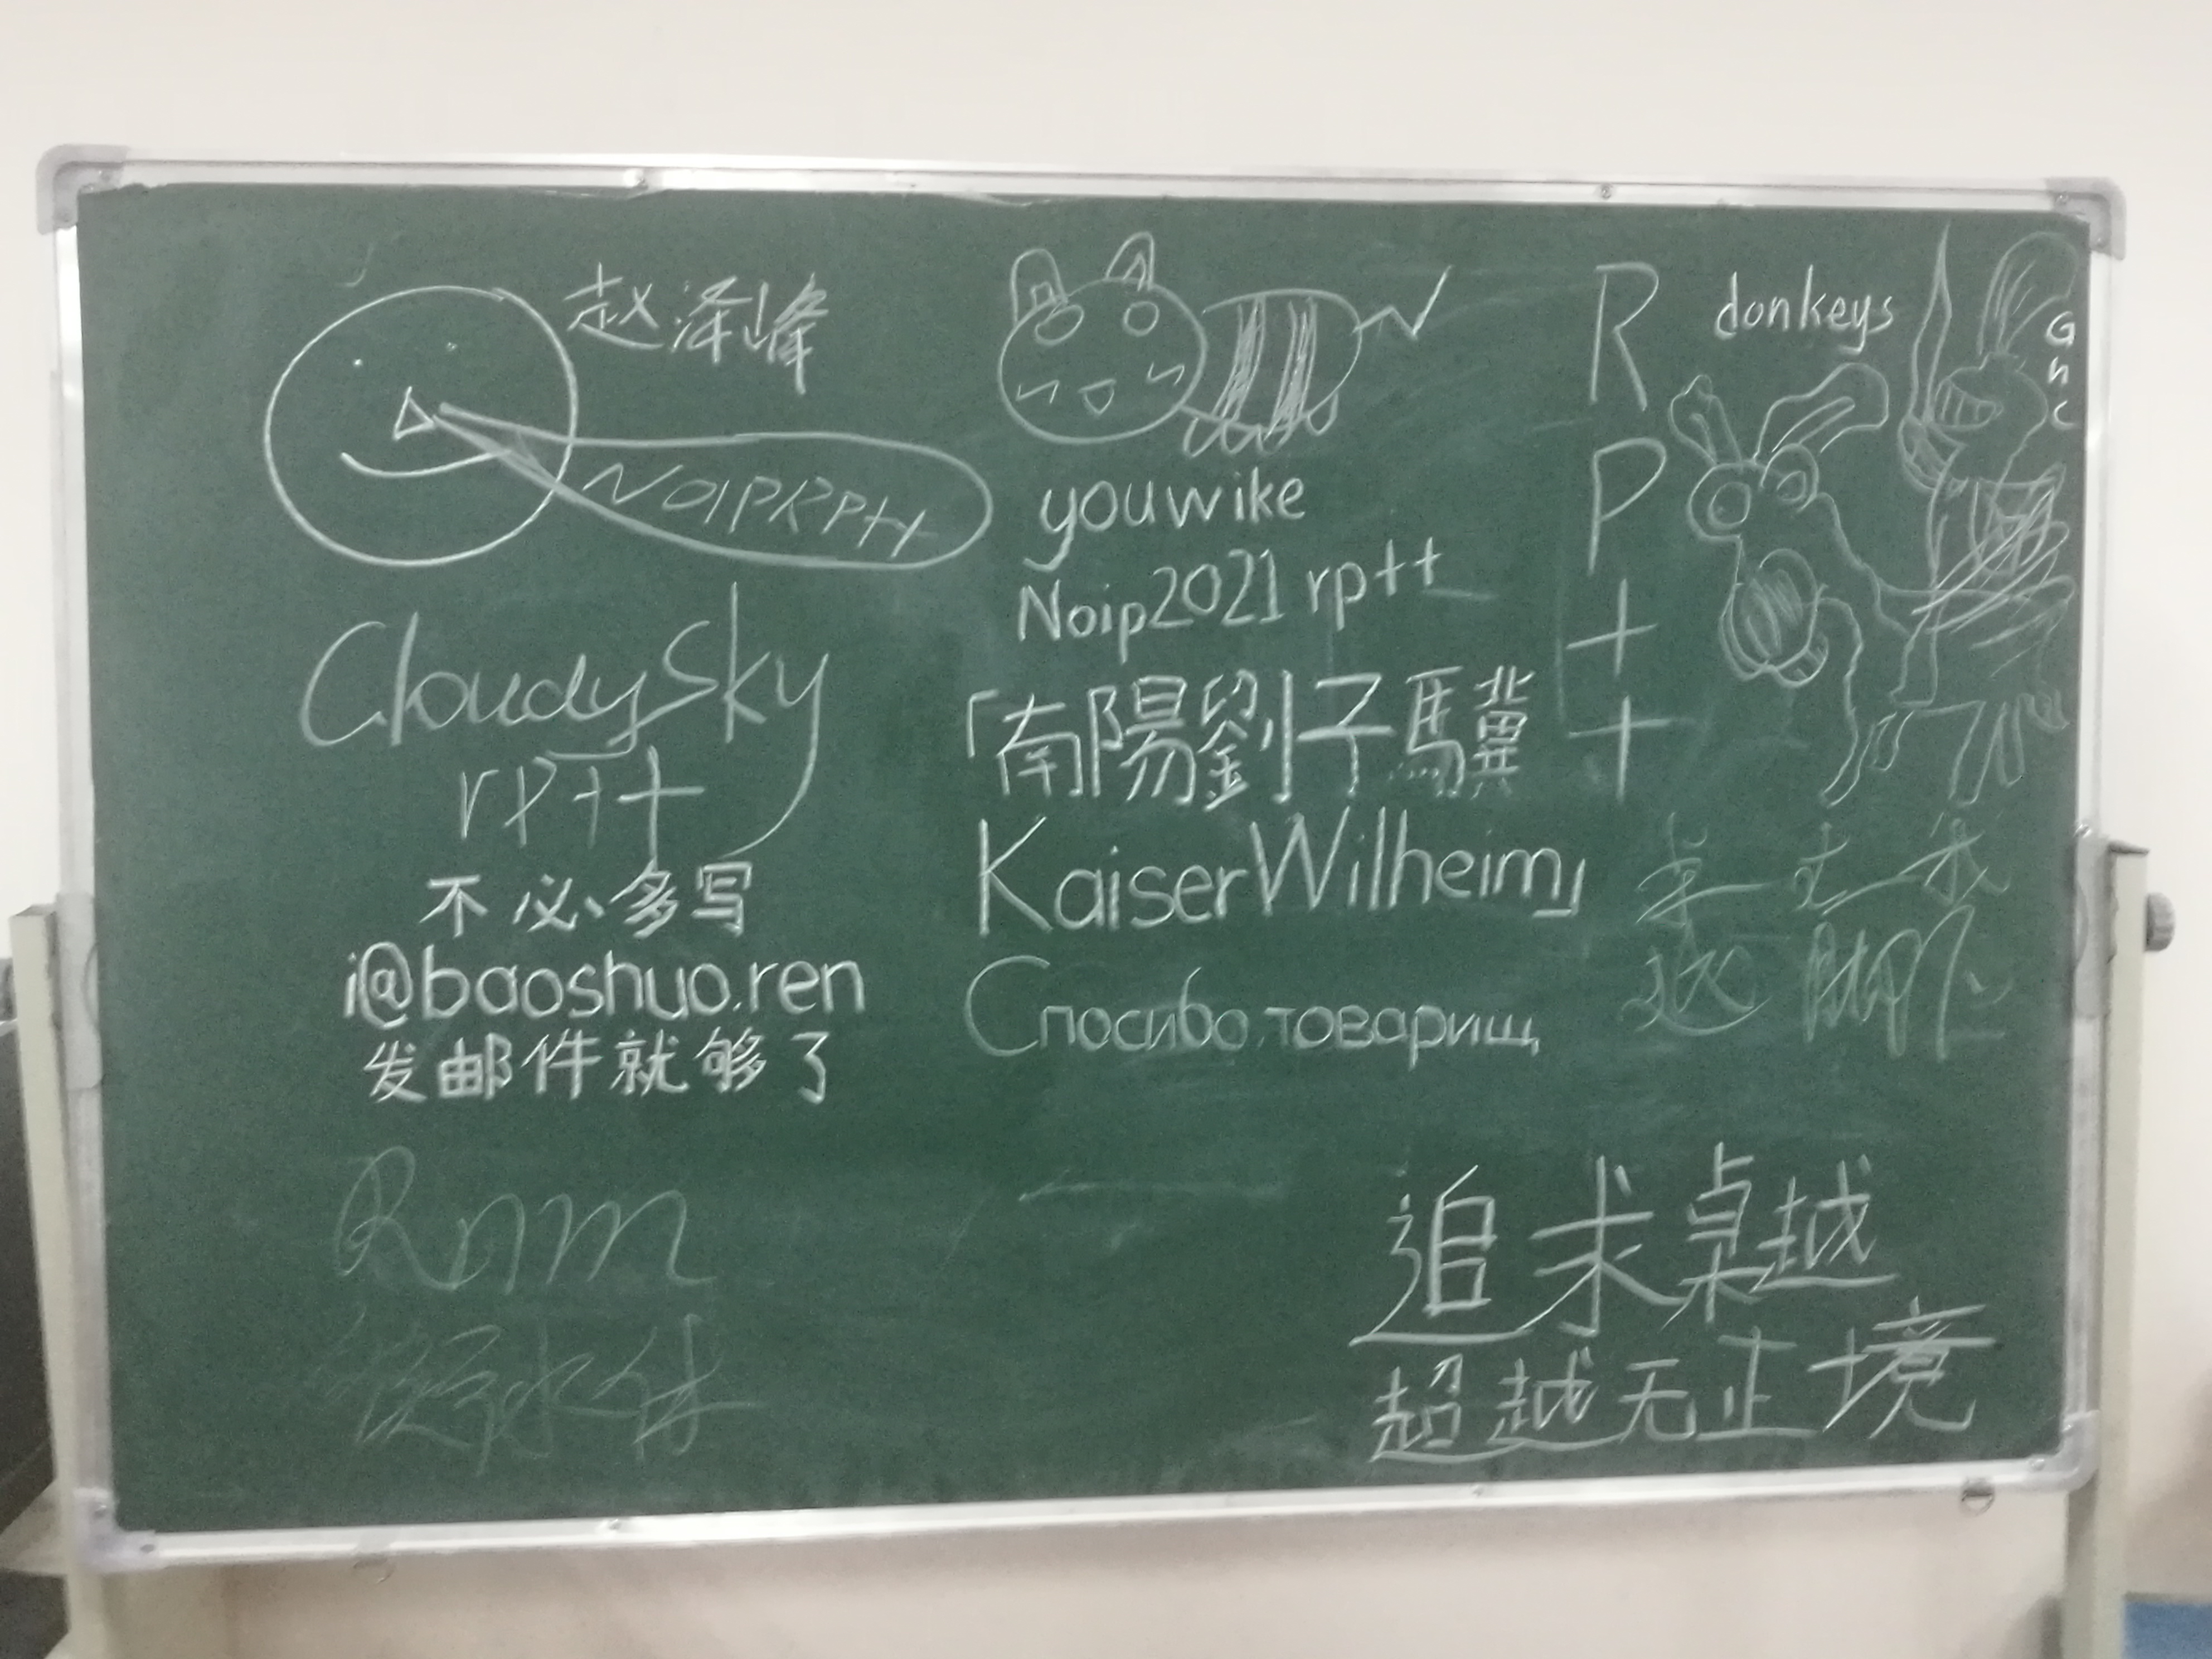 赵泽峰
NOIPRP++
CloudySky
rp++
不必多写
i@baoshuo.ren
发邮件就够了
Rnm
youwike
Noip2021 rp++
「南陽劉子驥
KaiserWilheim」
Спосибо,товарищ
R
P
+
+
donkeys
追求卓越
超越无止境